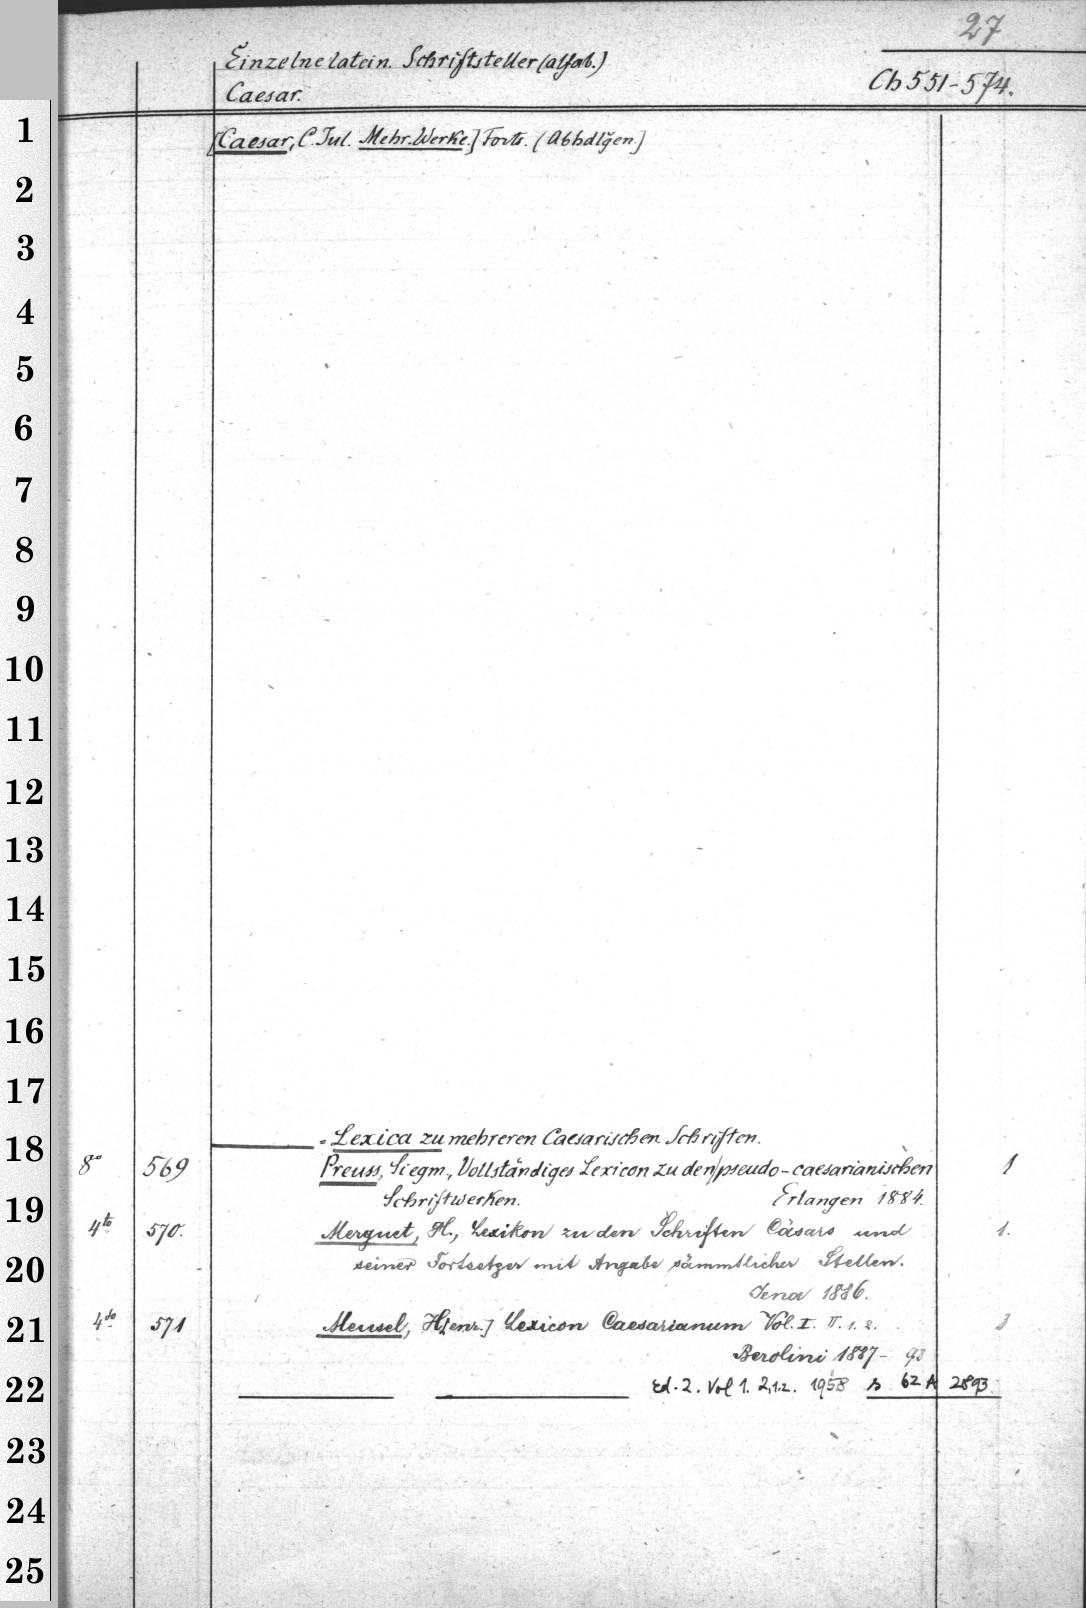 27
Einzelne latein. Schriftsteller (alfab.)
Caesar.
Ch 551-574.
[Caesar, C. Jul. Mehr. Werke.] Forts. (Abhdlgen.]
- Lexica zu mehreren Caesarischen Schriften.
8° 569 Preuss, Siegm., Vollständiges Lexicon zu den pseudo-caesarianischen 1
Schriftwerken. Erlangen 1884.
4to 570. Merguet, H., Lexikon zu den Schriften Cäsars und 1.
seiner Fortsetzer mit Angabe sämmtlicher Stellen.
Jena 1886.
4to 571 Meusel, H[enr.] Lexicon Caesarianum Vol. I. II. 1. 2. 3
Berolini 1887- 93
Ed. 2. Vol 1. 2,1.2. 1958 s 62 A 2893
1
2
3
4
5
6
7
8
9
10
11
12
13
14
15
16
17
18
19
20
21
22
23
24
25